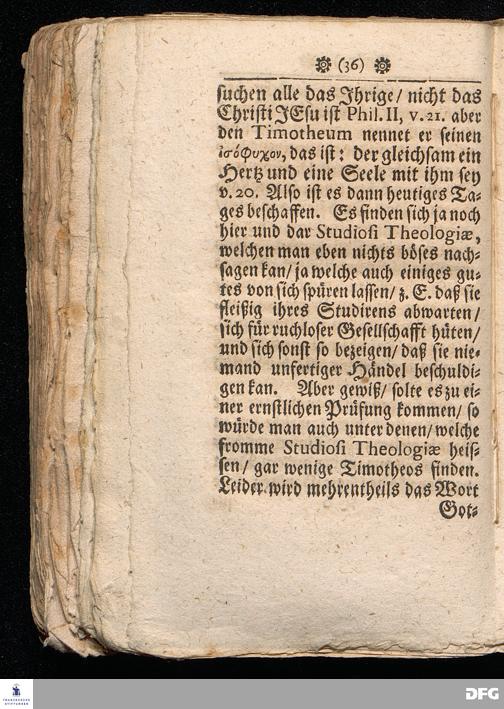 (36)
suchen alle das Ihrige/ nicht das
Christi JEsu ist Phil. II, v. 21. aber
den Timotheum nennet er seinen
ἰσόψυχον, das ist: der gleichsam ein
Hertz und eine Seele mit ihm sey
v. 20. Also ist es dann heutiges Ta-
ges beschaffen. Es finden sich ja noch
hier und dar Studiosi Theologiæ,
welchen man eben nichts böses nach-
sagen kan/ ja welche auch einiges gu-
tes von sich spüren lassen/ z. E. daß sie
fleißig ihres Studirens abwarten/
sich für ruchloser Gesellschafft hüten/
und sich sonst so bezeigen/ daß sie nie-
mand unfertiger Händel beschuldi-
gen kan. Aber gewiß/ solte es zu ei-
ner ernstlichen Prüfung kommen/ so
würde man auch unter denen/ welche
fromme Studiosi Theologiæ heis-
sen/ gar wenige Timotheos finden.
Leider wird mehrentheils das Wort
Got-
FRANCKESCHE
STIFTUNGEN
DFG